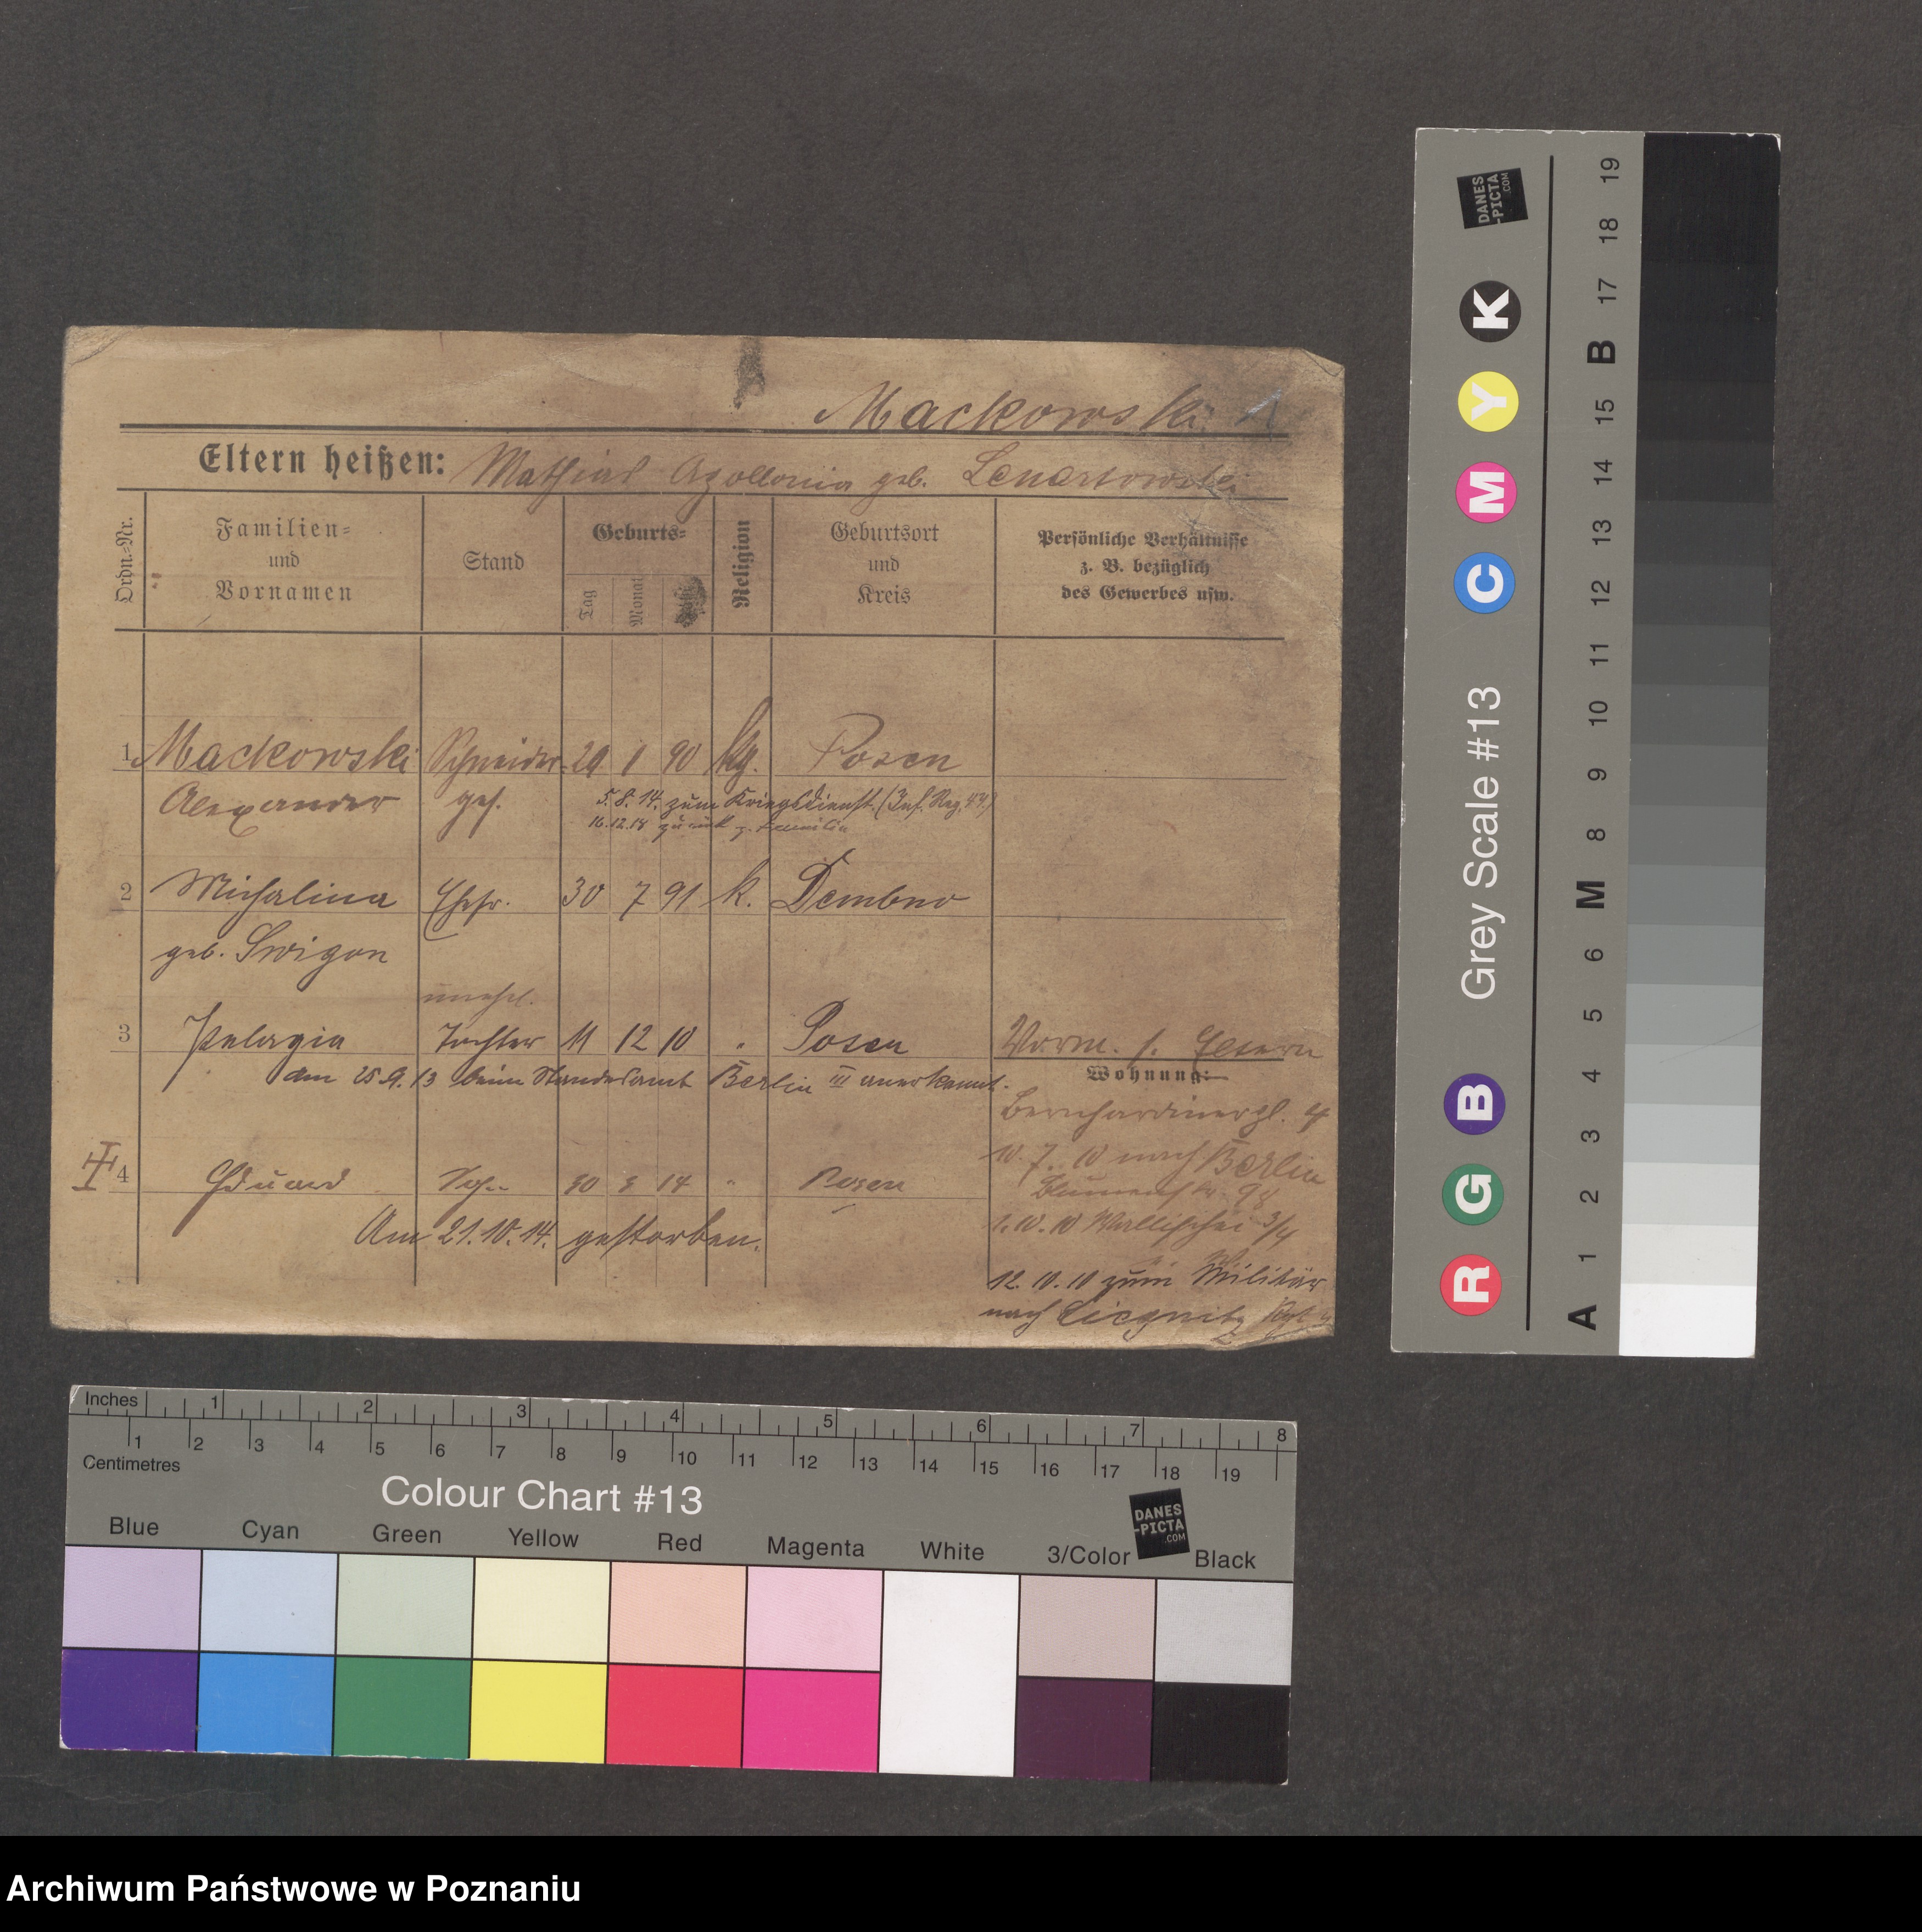 Mackowski A
Eltern heißen: Mathias Apollonia geb. Lenartowski
Ordn.-Nr.
Familien=
und
Vornamen
Stand
Geburts=
Tag
Monat
Religion
Geburtsort
und
Kreis
Persönliche Verhältnisse
z. B. bezüglich
des Gewerbes usw.
1 Mackowski Schneider- 29 1 90 kg. Posen
Alexander ges. 5.8.14. zum Kriegsdienst (Inf. Reg. 47)
16.12.18 zurück z. Familie
2 Michalina Ehefr. 30 7 91 k. Dembno
geb. Swigon
unehel.
3 Pelagia Tochter 11 12 10 " Posen Verm. s.
den 25.9.13 beim Standesamt Berlin III anerkannt.
Wohnung:
Bernhardinerpl. 4
10.7.10 nach Berlin
Blumenstr. 98
4 Eduard 30 Posen
1.10.10 Wallischei 3/4
Am 21.10.14. gestorben.
12.10.10 zum Militär
nach Liegnitz
DANES
-PICTA
.COM
R G B C M Y K
Grey Scale #13
A 1 2 3 4 5 6 M 8 9 10 11 12 13 14 15 B 17 18 19
Inches 1 2 3 4 5 6 7 8
1 2 3 4 5 6 7 8 9 10 11 12 13 14 15 16 17 18 19
Centimetres
Colour Chart #13
DANES
-PICTA
.COM
Blue Cyan Green Yellow Red Magenta White 3/Color Black
Archiwum Państwowe w Poznaniu